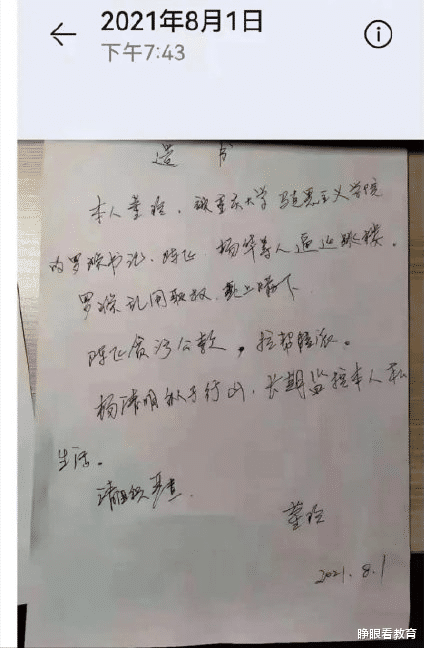 2021年8月1日
下午7:43
遗书
本人董玲,被重庆大学马克思主义学院
的罗 书记、陈 、杨 等人逼迫跳楼。
罗 乱用职权,欺上瞒下
陈 贪污公款,拉帮结派。
杨 ,长期监控本人私
生活。
请组织 查
董玲
2021.8.1
睁眼看教育